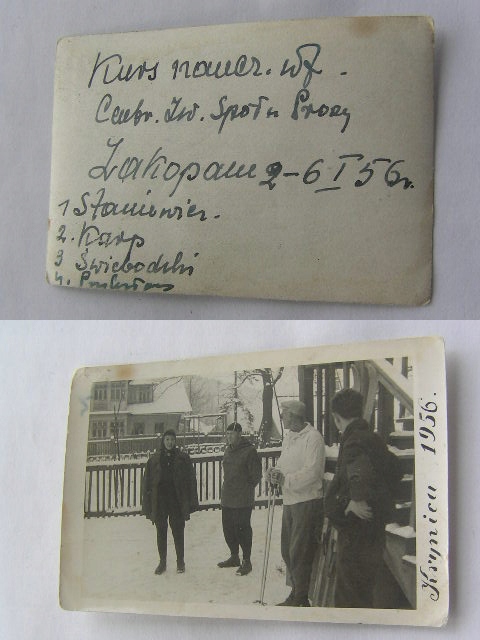 Kurs naucz. wf.
Centr. Zw. Społ. Pracy
Zakopane 2-6 I 56r.
1 Staniewicz.
2. Karp
3 Świebodzki
4.
Krynica 1956.